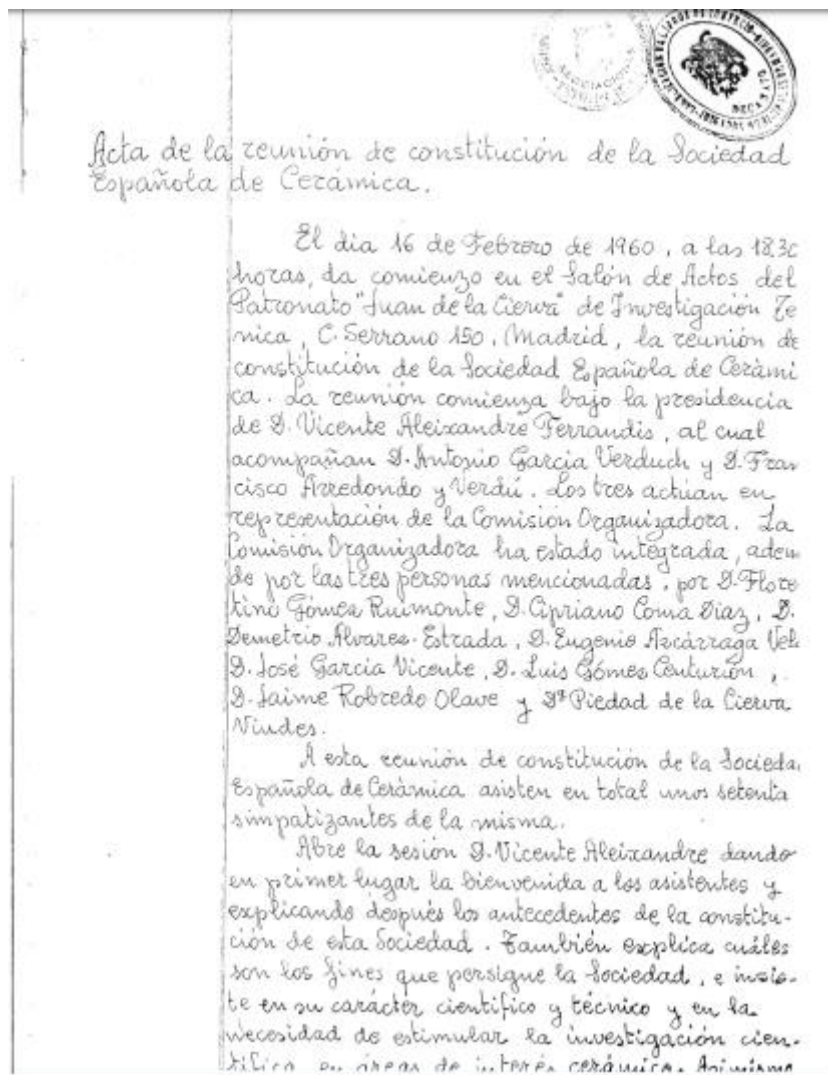 Acta de la reunión de constitución de la Sociedad
Española de Cerámica.
El dia 16 de Febrero de 1960, a las 18.30
horas, da comienzo en el Salón de Actos del
Patronato "Juan de la Cierva" de Investigación Te
nica, C. Serrano 150, Madrid, la reunión de
constitución de la Sociedad Española de Cerámi
ca. La reunión comienza bajo la presidencia
de D. Vicente Aleixandre Ferrandis, al cual
acompañan D. Antonio García Verduch y D. Fran
cisco Arredondo y Verdú. Los tres actúan en
representación de la Comisión Organizadora. La
Comisión Organizadora ha estado integrada, adem
de por las tres personas mencionadas, por D. Flore
tino Gómez Ruimonte, D. Cipriano Coma Díaz, D.
Demetrio Alvarez-Estrada, D. Eugenio Azcárraga Vel
D. José García Vicente, D. Luis Gómez Centurión,
D. Jaime Robredo Olave y Dª Piedad de la Cierva
Viudes.
A esta reunión de constitución de la Socieda
Española de Cerámica asisten en total unos setenta
simpatizantes de la misma.
Abre la sesión D. Vicente Aleixandre dando
en primer lugar la bienvenida a los asistentes y
explicando después los antecedentes de la constitu-
ción de esta Sociedad. También explica cuáles
son los fines que persigue la Sociedad, e insis-
te en su carácter científico y técnico y en la
necesidad de estimular la investigación cien-
tífica en áreas de interés cerámico. Asimismo